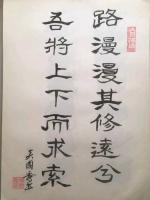 路漫漫其修遠兮
吾將上下而求索